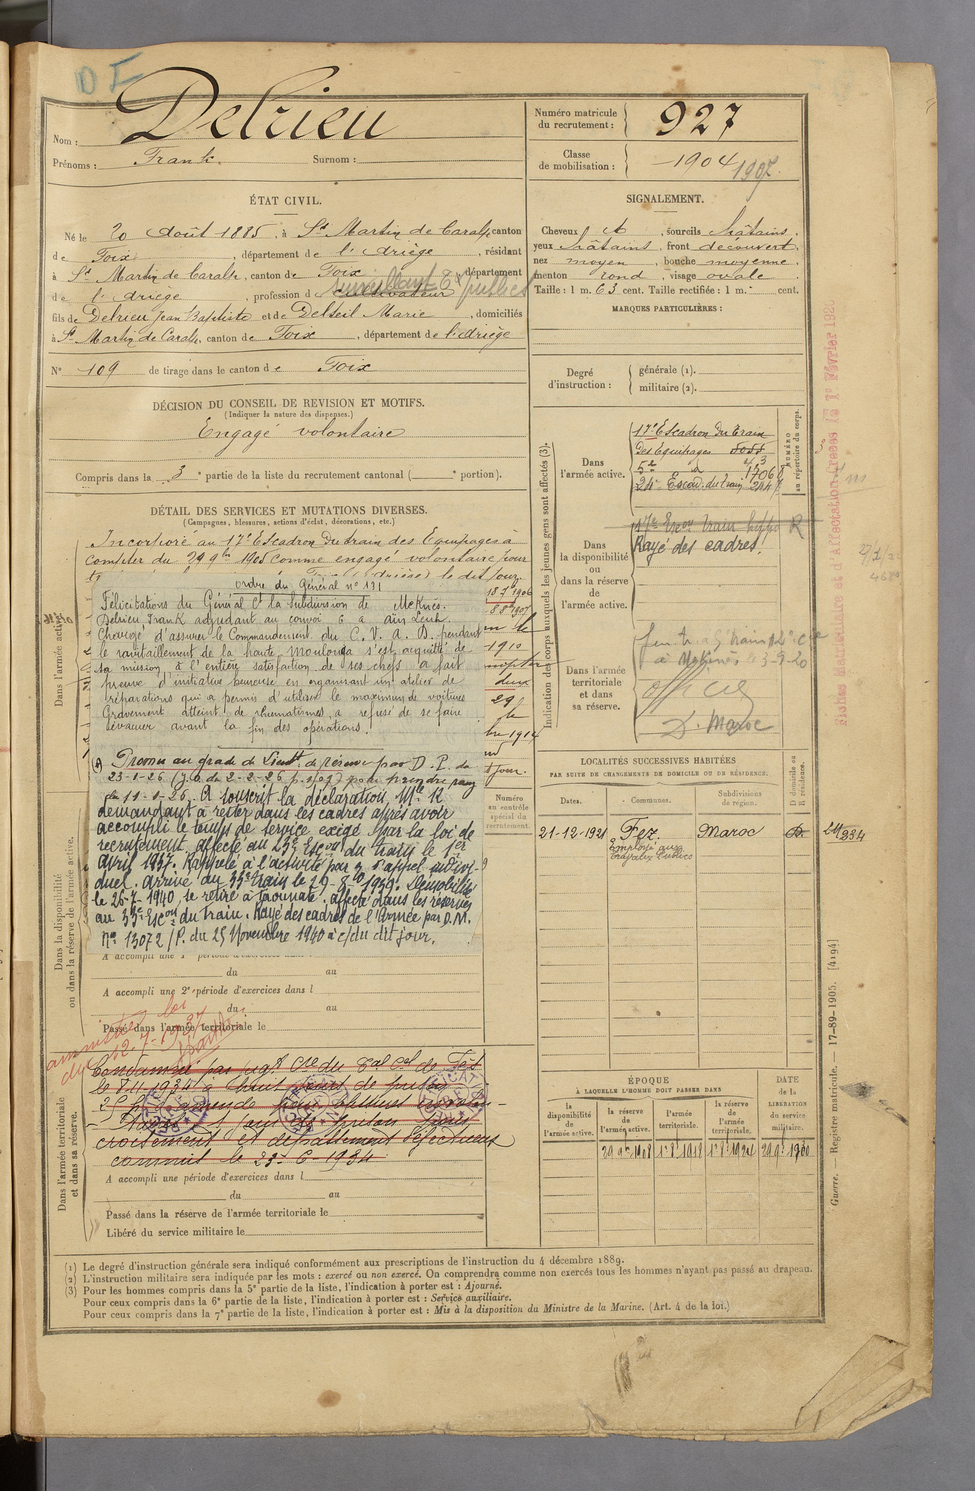 Nom : Delrieu
Prénoms : Frank. Surnom :
Numéro matricule du recrutement : 927
Classe de mobilisation : 1904 1907.
ÉTAT CIVIL.
Né le 20 Août 1885, à St Martin de Caralp, canton
de Foix, département de l'Ariège, résidant
à St Martin de Caralp, canton de Foix, département
de l'Ariège, profession de cultivateur surveillant Tx publics
fils de Delrieu Jean Baptiste et de Delseil Marie, domiciliés
à St Martin de Caralp, canton de Foix, département de l'Ariège
N° 109 de tirage dans le canton de Foix
SIGNALEMENT.
Cheveux, sourcils châtains,
yeux châtains, front découvert,
nez moyen, bouche moyenne,
menton rond, visage ovale
Taille : 1 m. 63 cent. Taille rectifiée : 1 m. cent.
MARQUES PARTICULIÈRES :
Degré d'instruction : générale (1).
militaire (2).
DÉCISION DU CONSEIL DE REVISION ET MOTIFS.
(Indiquer la nature des dispenses.)
Engagé volontaire
Compris dans la 3e partie de la liste du recrutement cantonal ( e portion).
DÉTAIL DES SERVICES ET MUTATIONS DIVERSES.
(Campagnes, blessures, actions d'éclat, décorations, etc.)
Dans l'armée active.
Incorporé au 17e Escadron du train des Equipages à
compter du 29 9bre 1905 comme engagé volontaire pour
le dit jour.
ordre du Général n° 131
Félicitations du Général Ct la Subdivision de Meknès.
Delrieu Frank adjudant au convoi 6 a aïn Leuh.
Chargé d'assurer le Commandement du C. V. A. B. pendant
le ravitaillement de la haute Moulouya s'est acquitté de
sa mission à l'entière satisfaction de ses chefs a fait
preuve d'initiative heureuse en organisant un atelier de
réparations qui a permis d'utiliser le maximum de voitures
Gravement atteint de rhumatismes, a refusé de se faire
évacuer avant la fin des opérations.
Promu au grade de Lieutt de réserve par D. P. du
23-1-26 (J.O. du 2-2-26 p.1709) pour prendre rang
du 11-1-26. A souscrit la déclaration, Mle 12
demandant à rester dans les cadres après avoir
accompli le temps de service exigé par la loi de
recrutement, affecté au 25e Escon du train le 1er
avril 1937. Rappelé à l'activité par o. d'appel indivi-
duel. Arrivé au 33e train le 29-8-1939. Démobilisé
le 26-7-1940, se retire à Taounate. affecté dans les réserves
au 33e Escon du train. Rayé des cadres de l'Armée par D.M.
N° 13072 /P. du 25 Novembre 1940 à c/du dit jour.
Dans la disponibilité ou dans la réserve de l'armée active.
A accompli une 1re période d'exercices dans l
du au
A accompli une 2e période d'exercices dans l
du au
Passé dans l'armée territoriale le
amnistié loi
du 12-7-1937
Dans l'armée territoriale et dans sa réserve.
Condamné par jugt
le 8-11-1934 à huit jours de prison
2
croisement et dépassement défectueux
commis le 23-6-1934
A accompli une période d'exercices dans l
du au
Passé dans la réserve de l'armée territoriale le
Libéré du service militaire le
Numéro au contrôle spécial du recrutement.
Indication des corps auxquels les jeunes gens sont affectés (3).
Dans l'armée active.
17e Escadron du train
des Equipages
24e Escad. du train 244
NUMÉRO au répertoire du corps.
Dans la disponibilité ou dans la réserve de l'armée active.
17e Escon train
Rayé des cadres.
Dans l'armée territoriale et dans sa réserve.
à Meknès 3-9-20
officier
D. Maroc
LOCALITÉS SUCCESSIVES HABITÉES
PAR SUITE DE CHANGEMENTS DE DOMICILE OU DE RÉSIDENCE.
Dates. Communes. Subdivisions de région. D domicile ou R résidence.
21-12-1921 Fez. Maroc R.
Employé aux
travaux Publics
ÉPOQUE
À LAQUELLE L'HOMME DOIT PASSER DANS
la disponibilité de l'armée active.
la réserve de l'armée active.
l'armée territoriale.
la réserve de l'armée territoriale.
DATE de la LIBÉRATION du service militaire.
29 9bre 1908
Fiches Matriculaire et d'Affectation créées le 1er Février 192
Guerre. — Registre matricule. — 17-89-1905. [4194]
(1) Le degré d'instruction générale sera indiqué conformément aux prescriptions de l'instruction du 4 décembre 1889.
(2) L'instruction militaire sera indiquée par les mots : exercé ou non exercé. On comprendra comme non exercés tous les hommes n'ayant pas passé au drapeau.
(3) Pour les hommes compris dans la 5e partie de la liste, l'indication à porter est : Ajourné.
Pour ceux compris dans la 6e partie de la liste, l'indication à porter est : Service auxiliaire.
Pour ceux compris dans la 7e partie de la liste, l'indication à porter est : Mis à la disposition du Ministre de la Marine. (Art. 4 de la loi.)